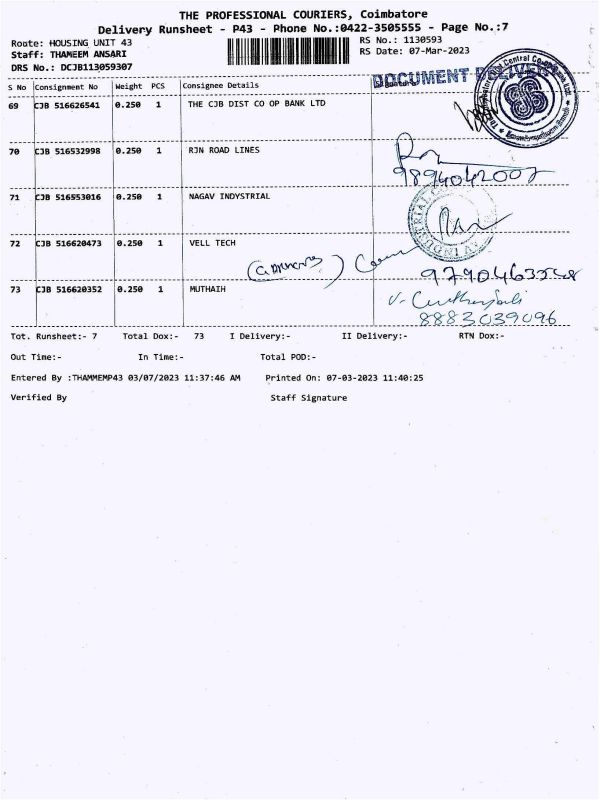 THE PROFESSIONAL COURIERS, Coimbatore
Delivery Runsheet - P43 - Phone No.:0422-3505555 - Page No.:7
Route: HOUSING UNIT 43 RS No.: 1130593
Staff: THAMEEM ANSARI RS Date: 07-Mar-2023
DRS No.: DCJB113059307
DOCUMENT DELIVER
S No Consignment No Weight PCS Consignee Details
69 CJB 516626541 0.250 1 THE CJB DIST CO OP BANK LTD
70 CJB 516532998 0.250 1 RJN ROAD LINES
9894042007
71 CJB 516553016 0.250 1 NAGAV INDYSTRIAL
72 CJB 516620473 0.250 1 VELL TECH
73 CJB 516620352 0.250 1 MUTHAIH
8883039096
Tot. Runsheet:- 7 Total Dox:- 73 I Delivery:- II Delivery:- RTN Dox:-
Out Time:- In Time:- Total POD:-
Entered By :THAMMEMP43 03/07/2023 11:37:46 AM Printed On: 07-03-2023 11:40:25
Verified By Staff Signature